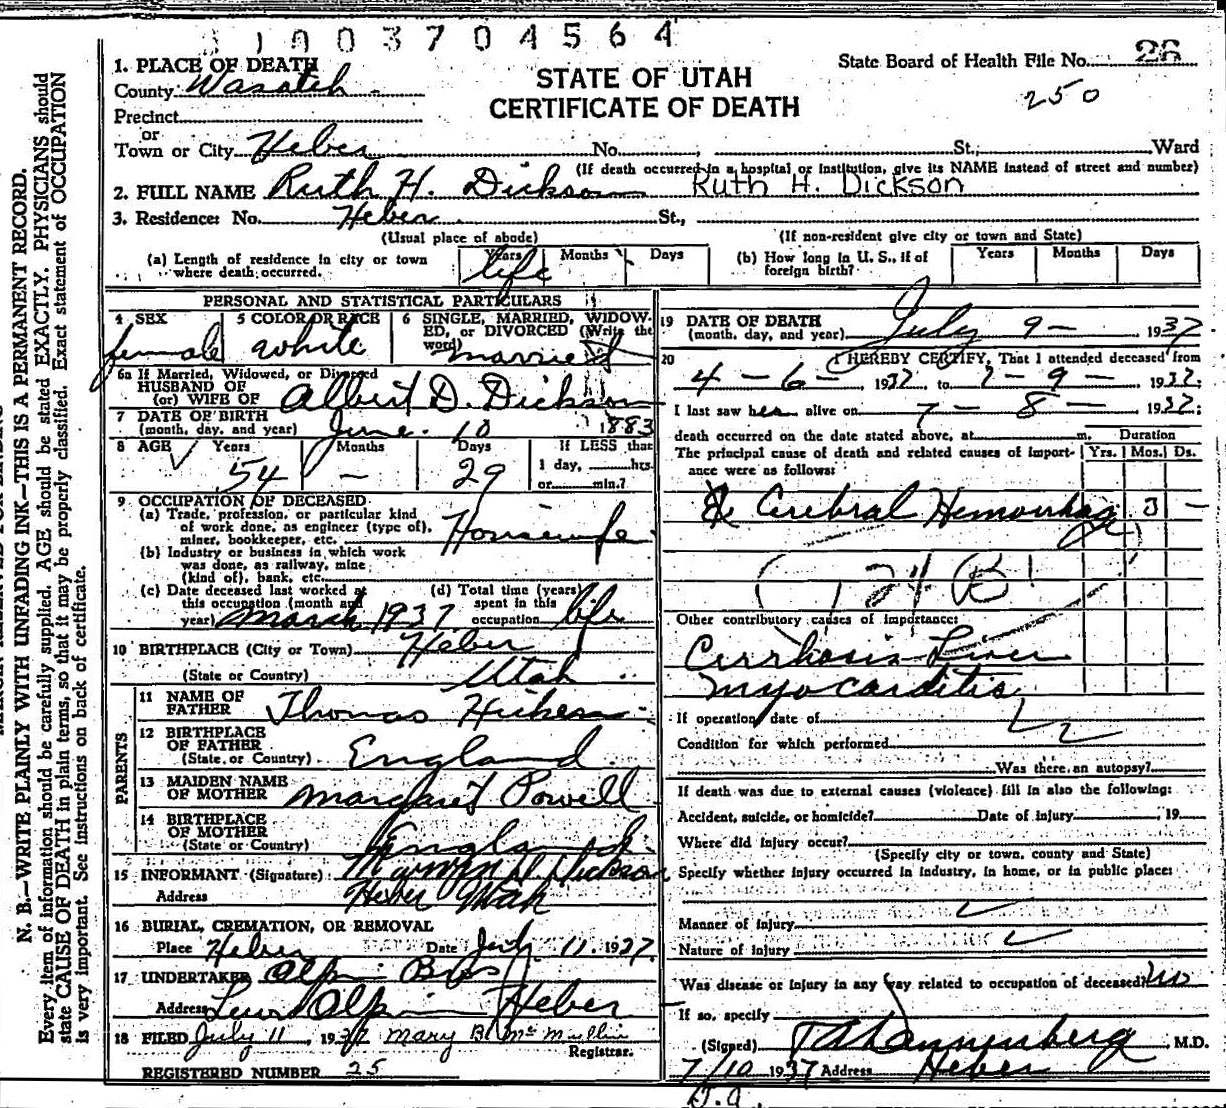 1003704564
STATE OF UTAH
CERTIFICATE OF DEATH
State Board of Health File No. 26
250
1. PLACE OF DEATH
County Wasatch
Precinct
or
Town or City Heber No. St., Ward
(If death occurred in a hospital or institution, give its NAME instead of street and number)
2. FULL NAME Ruth H. Dickson Ruth H. Dickson
3. Residence: No. Heber St.,
(Usual place of abode) (If non-resident give city or town and State)
(a) Length of residence in city or town where death occurred. Years life Months Days
(b) How long in U. S., if of foreign birth? Years Months Days
PERSONAL AND STATISTICAL PARTICULARS
4 SEX female
5 COLOR OR RACE white
6 SINGLE, MARRIED, WIDOWED, or DIVORCED (Write the word) married
6a If Married, Widowed, or Divorced
HUSBAND OF
(or) WIFE OF Albert D. Dickson
7 DATE OF BIRTH
(month, day, and year) June 10 1883
8 AGE Years 54 Months — Days 29
If LESS than
1 day, hrs.
or min.?
9 OCCUPATION OF DECEASED
(a) Trade, profession, or particular kind
of work done, as engineer (type of),
miner, bookkeeper, etc. Housewife
(b) Industry or business in which work
was done, as railway, mine
(kind of), bank, etc.
(c) Date deceased last worked at
this occupation (month and
year) March 1937
(d) Total time (years)
spent in this
occupation life
10 BIRTHPLACE (City or Town) Heber
(State or Country) Utah
PARENTS
11 NAME OF
FATHER Thomas Hicken
12 BIRTHPLACE
OF FATHER
(State or Country) England
13 MAIDEN NAME
OF MOTHER Margaret Powell
14 BIRTHPLACE
OF MOTHER
(State or Country) England
15 INFORMANT (Signature) Dickson
Address Heber Utah
16 BURIAL, CREMATION, OR REMOVAL
Place Heber Date July 11, 1937
17 UNDERTAKER Bros
Address Heber
18 FILED July 11, 1937 Mary B. McMullin
Registrar.
REGISTERED NUMBER 25
19 DATE OF DEATH
(month, day, and year) July 9 — 1937
20 I HEREBY CERTIFY, That I attended deceased from
4 — 6 — 1937, to 7 — 9 — 1937;
I last saw her alive on 7 — 8 — 1937;
death occurred on the date stated above, at m. Duration
The principal cause of death and related causes of importance were as follows: Yrs. Mos. Ds.
Cerebral Hemorrhage 3 —
Other contributory causes of importance:
Cirrhosis Liver
Myocarditis
If operation, date of
Condition for which performed
Was there an autopsy?
If death was due to external causes (violence) fill in also the following:
Accident, suicide, or homicide? Date of injury , 19
Where did injury occur?
(Specify city or town, county and State)
Specify whether injury occurred in industry, in home, or in public place:
Manner of injury
Nature of injury
Was disease or injury in any way related to occupation of deceased? no
If so, specify
(Signed) , M.D.
7/10 1937 Address Heber
N. B.—WRITE PLAINLY WITH UNFADING INK—THIS IS A PERMANENT RECORD.
Every item of information should be carefully supplied. AGE should be stated EXACTLY. PHYSICIANS should
state CAUSE OF DEATH in plain terms, so that it may be properly classified. Exact statement of OCCUPATION
is very important. See instructions on back of certificate.